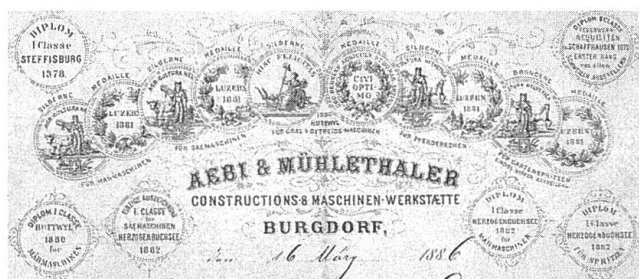 DIPLOM
I Classe
STEFFISBURG
1878.
DIPLOM I CLASSE
FEUERWEHR
REQUISITEN
SCHAFFHAUSEN
ERSTER RANG
von allen
SILBERNE
MEDAILLE
LUZERN
1881
FÜR MÄHMASCHINEN
SILBERNE
MEDAILLE
LUZERN
1881
FÜR SAEMASCHINEN
SILBERNE
MEDAILLE
CIVI
OPTI-
MO
HUTTWYL
FÜR GRAS & GETREIDE MASCHINEN
SILBERNE
MEDAILLE
LUZERN
1881
FÜR PFERDERECHEN
BRONCENE
MEDAILLE
LUZERN
1881
AEBI & MÜHLETHALER
CONSTRUCTIONS-& MASCHINEN-WERKSTÆTTE
BURGDORF,
den 16 März 1886
DIPLOM I CLASSE
HUTTWYL
1880
für
MÄHMASCHINEN
I. CLASSE
für
SAEMASCHINEN
HERZOGENBUCHSEE
1882
DIPLOM
I Classe
HERZOGENBUCHSEE
1882
für
MÄHMASCHINEN
DIPLOM
I Classe
HERZOGENBUCHSEE
1882
FÜR SPRITZEN